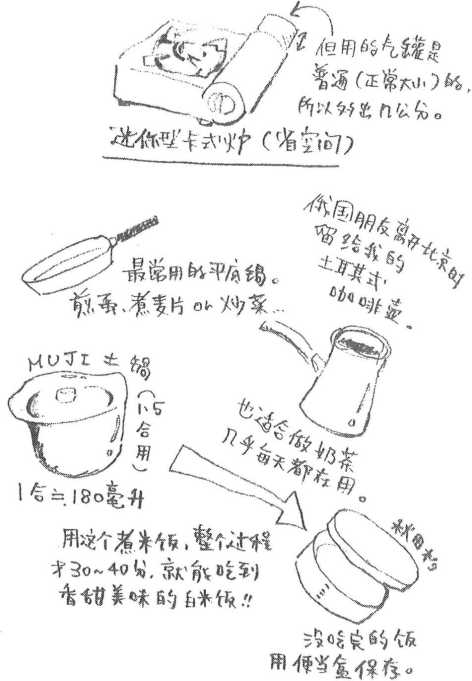 但用的气罐是
普通(正常大小)的,
所以多出几公分。
迷你型卡式炉(省空间)
俄国朋友离开北京时
留给我的
土耳其式
咖啡壶。
最常用的平底锅。
煎蛋、煮麦片 or 炒菜...
MUJI 土锅
(1.5合用)
1合≒180毫升
也适合做奶茶
几乎每天都在用。
用这个煮米饭,整个过程
才30~40分,就能吃到
香甜美味的白米饭!!
秋田杉
没吃完的饭
用便当盒保存。